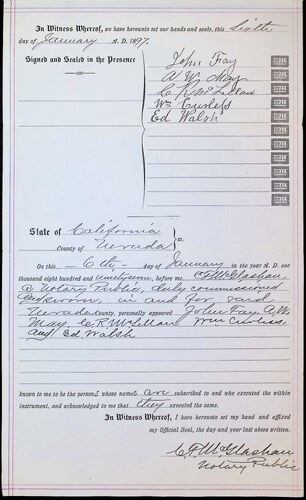 In Witness Whereof, we have hereunto set our hands and seals, this Sixth
day of January A. D. 1897.
Signed and Sealed in the Presence
OF
John Fay
A W. May
C R McLellan
Wm Curless
Ed Walsh
State of California
County of Nevada } ss.
On this 6th day of January in the year A. D. one
thousand eight hundred and ninetyseven, before me C.F. McGlashan
a Notary Public, duly commissioned
and sworn, in and for said
Nevada county, personally appeared John Fay, A.W.
May, C. R McLellan Wm Curless,
and Ed. Walsh
known to me to be the persons whose names are subscribed to and who executed the within
instrument, and acknowledged to me that they executed the same.
In Witness Whereof, I have hereunto set my hand and affixed
my Official Seal, the day and year last above written.
C.F. McGlashan
Notary Public